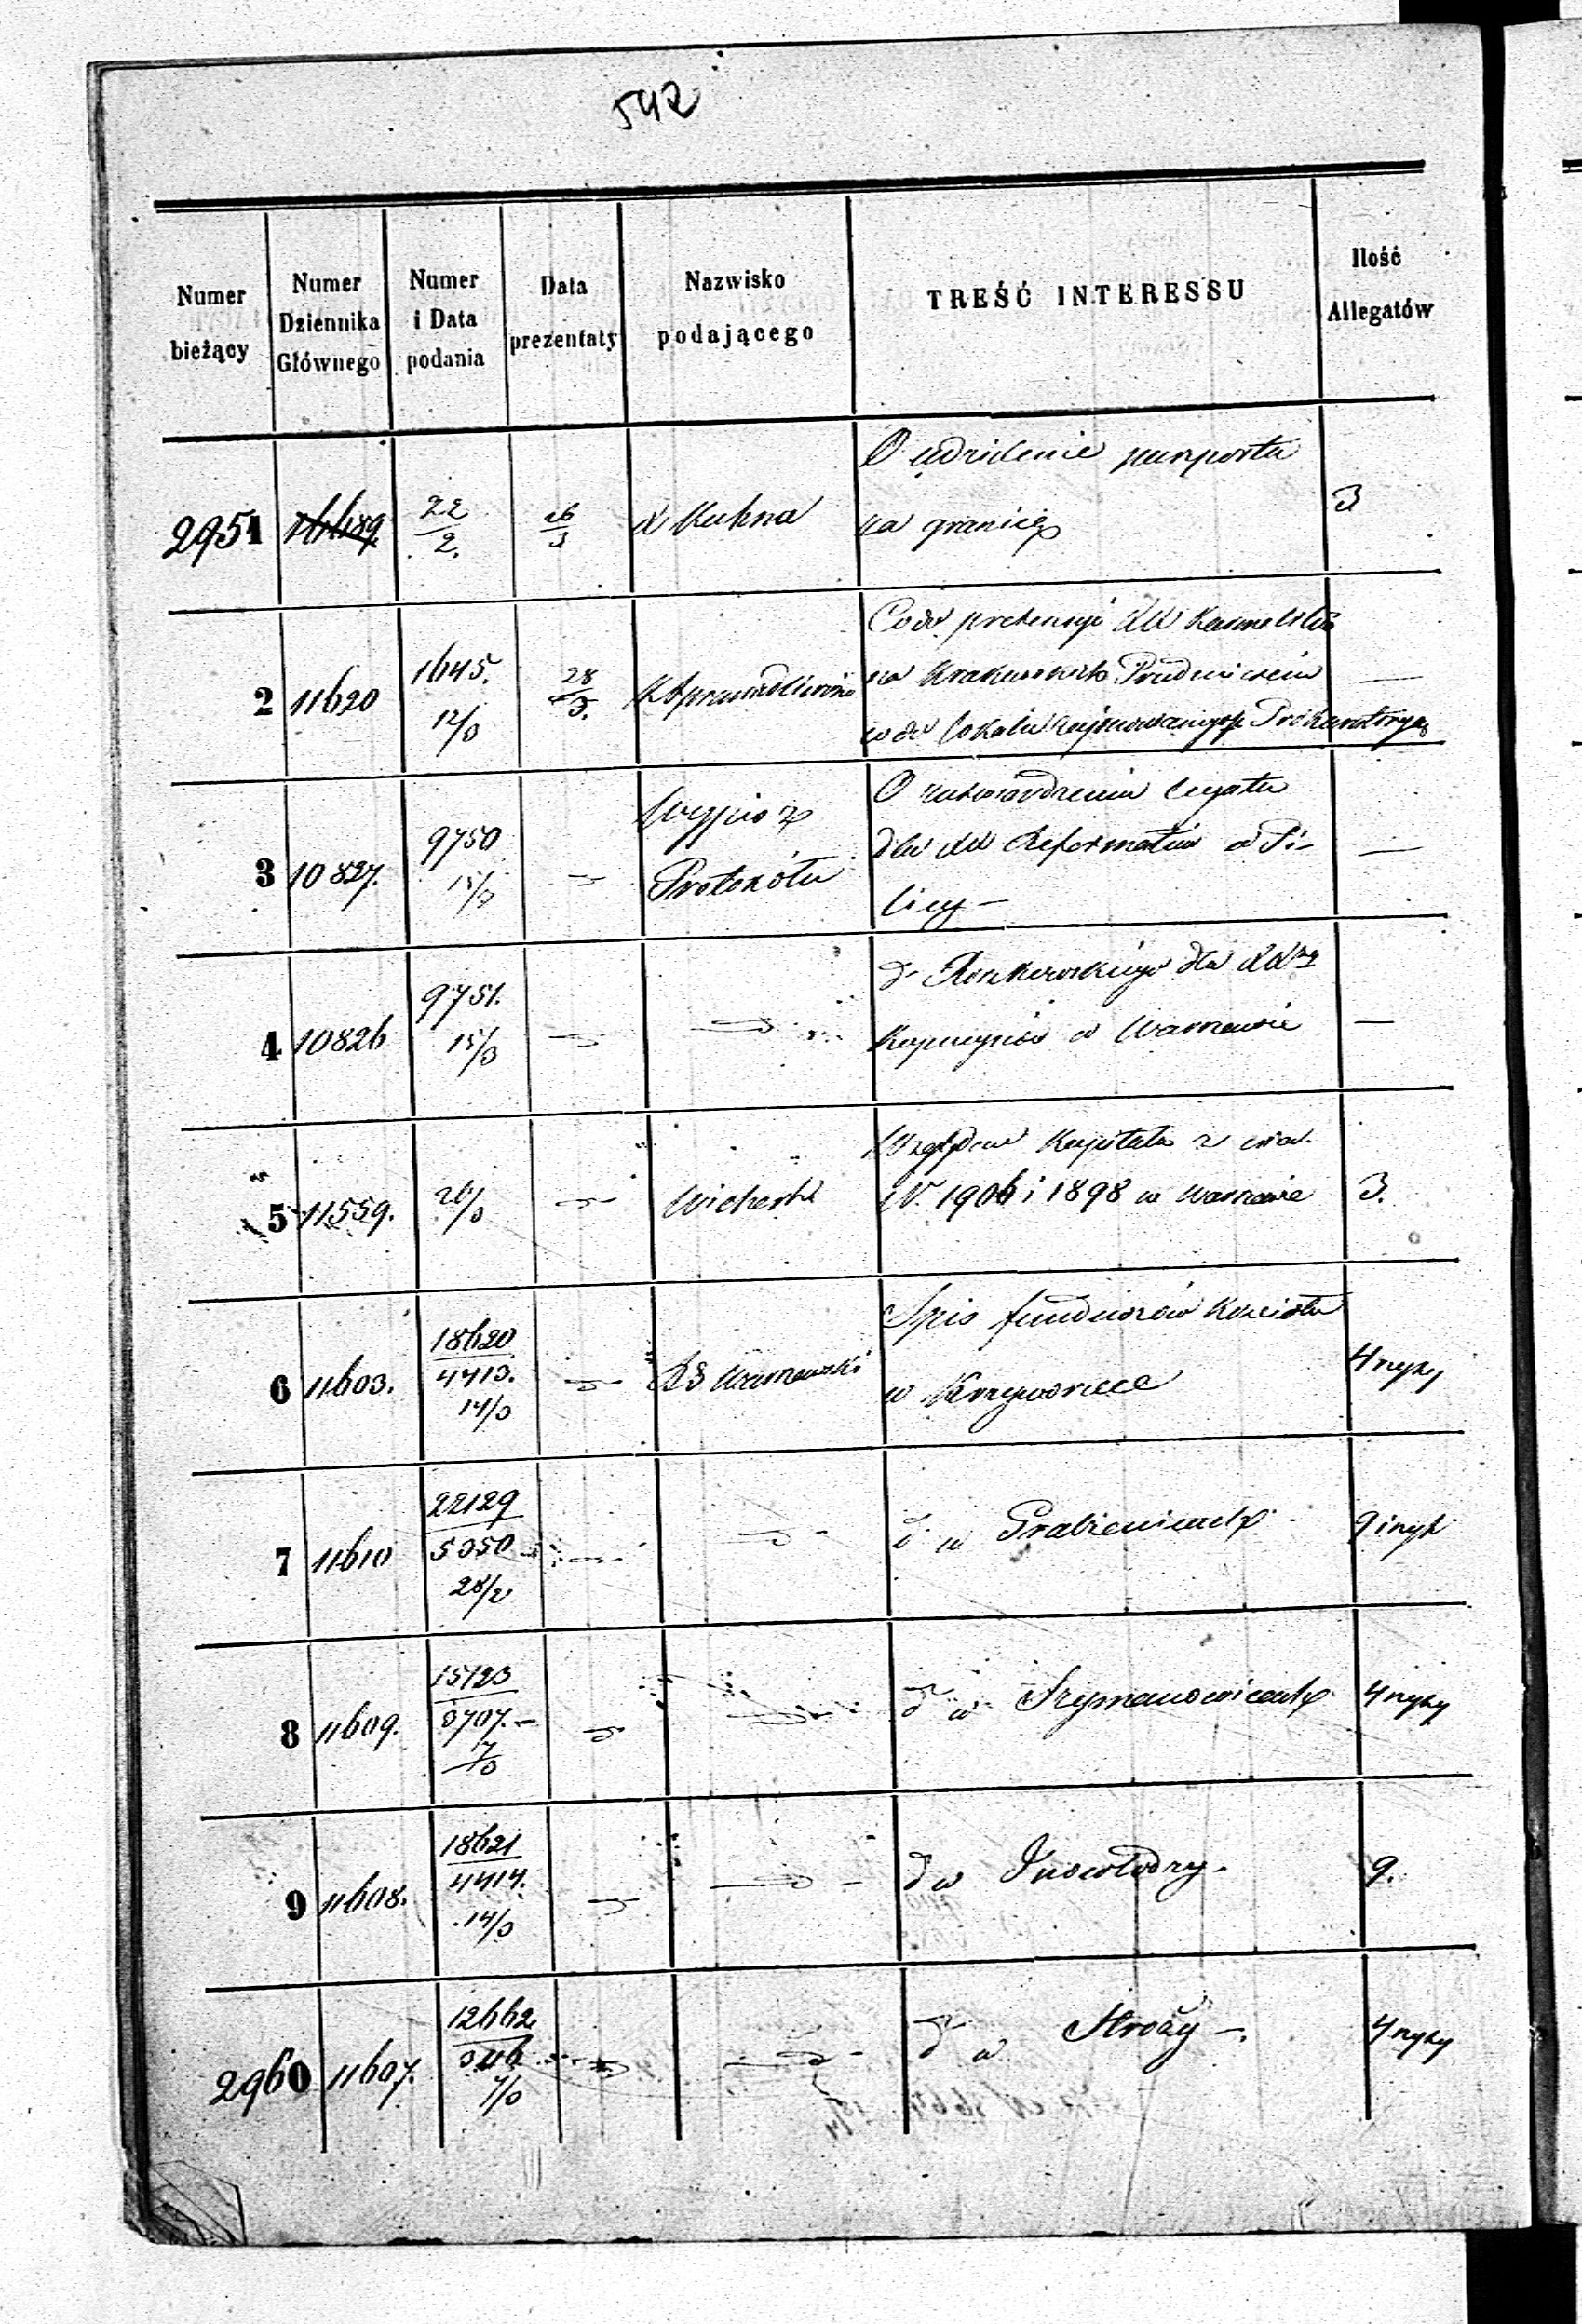 542
Numer bieżący
Numer Dziennika Głównego
Numer i Data podania
Data prezentaty
Nazwisko podającego
TREŚĆ INTERESSU
Ilość Allegatów
O udzielenie paszportu
2951 22/2. 26/3 X Kuhna za granicę 3
Co do pretensyi XX Karmelitów
2 11620 1645. 12/3 28/3. na Krakowskim Przedmieściu —
co do lokalu zajmowanego p. Prokuratoryą
O zatwierdzeniu legatu
3 10827. 9750 15/3 Wypis z Protokółu dla XX Reformatów w Pi- —
licy —
d° dla XX
4 10826 9751. 15/3 Kapucynów w Warszawie —
Względem Kapitału z
5 11559. 26/3 N. 1906 i 1898 w Warszawie 3.
Spis funduszów Kościoła
6 11603. 18620/4413. 14/3 RG Warszawski w 4 ryky
7 11610 22129/5050 28/2 d° w 9 i ryk
8 11609. 15123/3707. — 7/3 d° w Szymanowicach 4 ryky
9 11608. 18621/4414. 14/3 d° w Inowłodzu — 9.
2960 11607. 12662 7/3 d° w Stroży —. 4 ryky